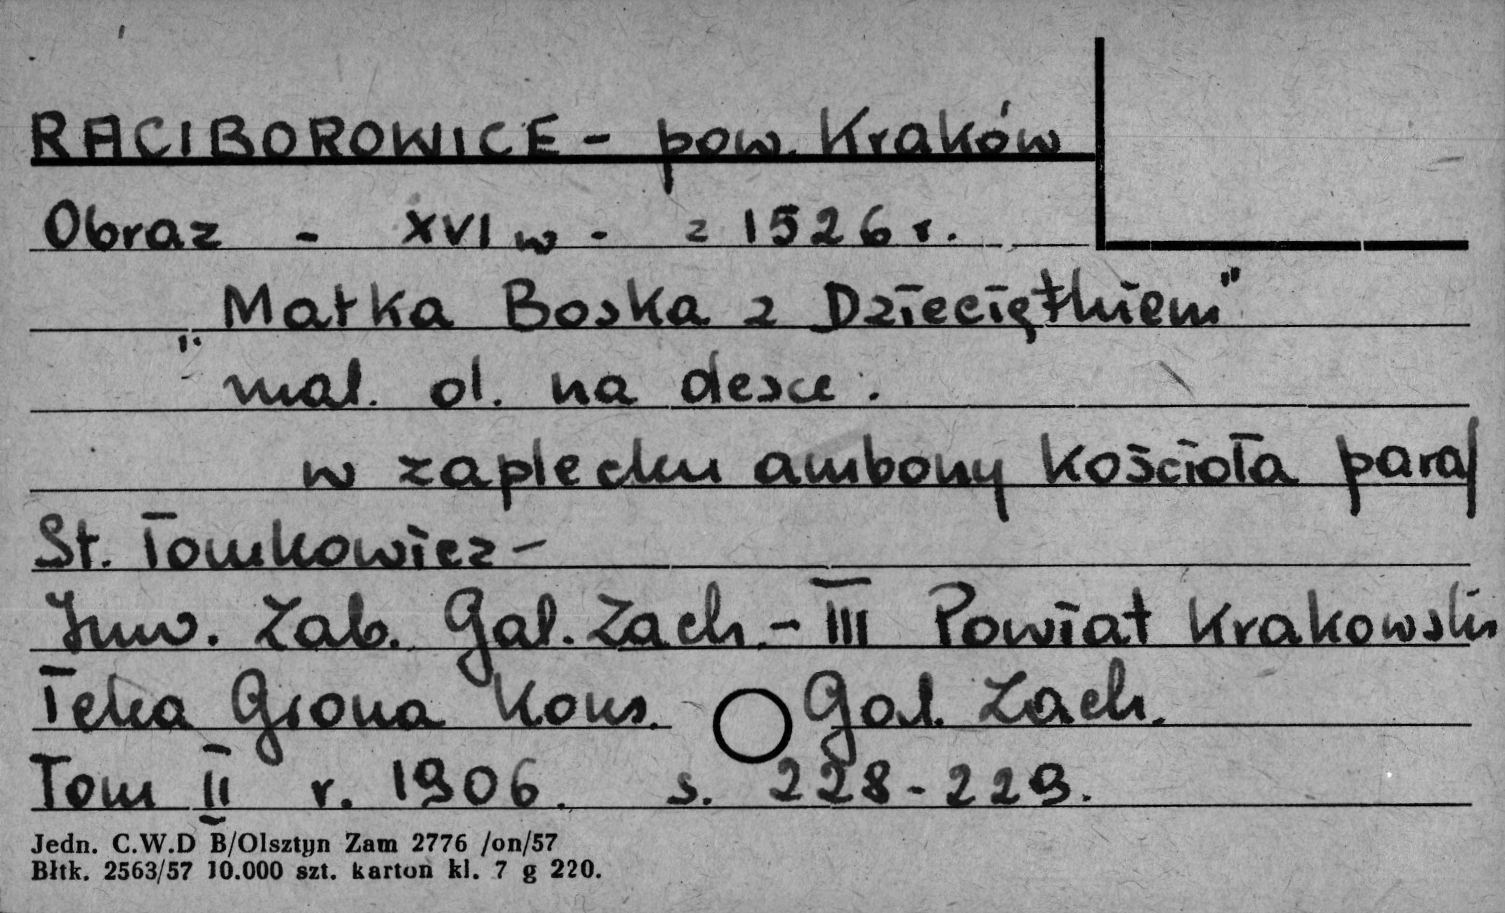 RACIBOROWICE - pow. Kraków
Obraz - XVI w - z 1526 r.
"Matka Boska z Dzieciątkiem"
mal. ol. na desce.
w zaplecku ambony kościoła paraf
St. Tomkowicz -
Inw. Zab. Gal. Zach. - III Powiat Krakowski
Teka Grona Kons. Gal. Zach.
Tom II r. 1906. s. 228-229.
Jedn. C.W.D B/Olsztyn Zam 2776 /on/57
Błtk. 2563/57 10.000 szt. karton kl. 7 g 220.